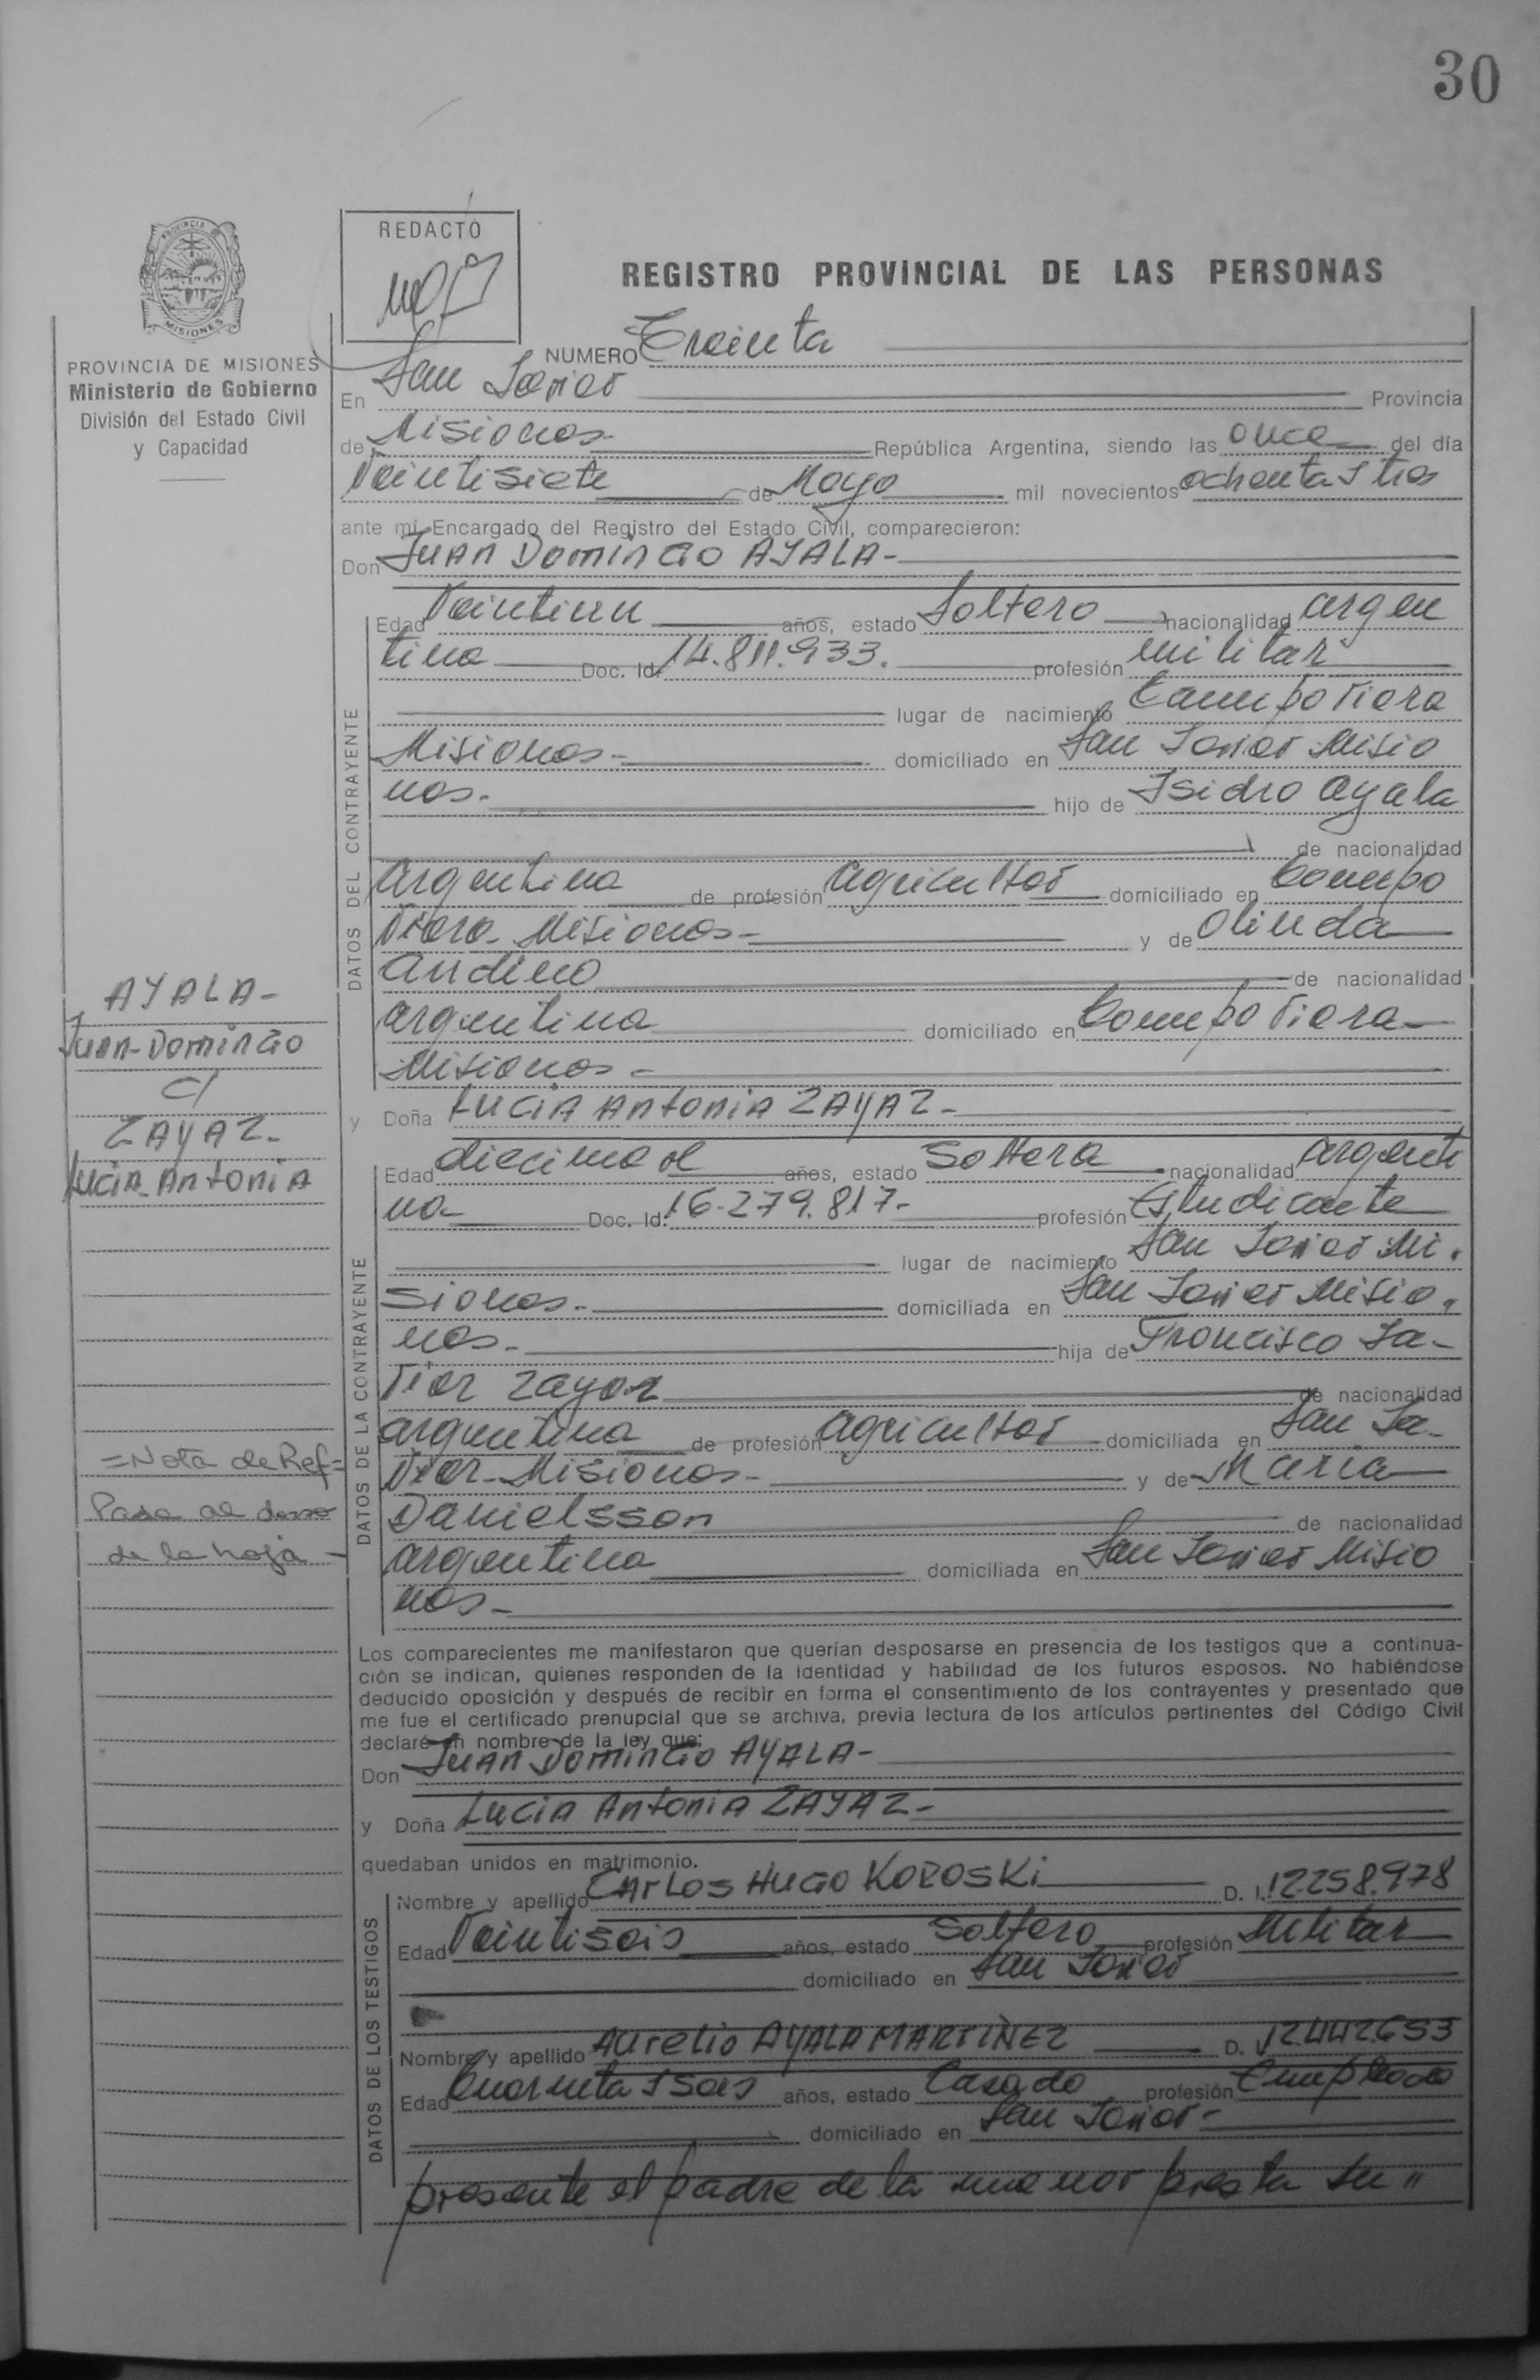 30
REDACTÓ
REGISTRO PROVINCIAL DE LAS PERSONAS
PROVINCIA DE MISIONES
Ministerio de Gobierno
División del Estado Civil
y Capacidad
NUMERO Treinta
En San Javier Provincia
de Misiones- República Argentina, siendo las once del día
Veintisiete de Mayo mil novecientos ochenta y tres
ante mí Encargado del Registro del Estado Civil, comparecieron:
Don JUAN DOMINGO AYALA-
DATOS DEL CONTRAYENTE
Edad Veintiun años, estado Soltero nacionalidad argen
tina Doc. Id. 14.811.933. profesión militar
lugar de nacimiento Campo Viera
Misiones- domiciliado en San Javier Misio
nes- hijo de Isidro Ayala
de nacionalidad
argentina de profesión agricultor domiciliado en Campo
Viera- Misiones- y de Olinda
Andino de nacionalidad
argentina domiciliado en Campo Viera-
Misiones-
y Doña LUCIA ANTONIA ZAYAZ-
AYALA-
JUAN-DOMINGO
C/
ZAYAZ-
LUCIA-ANTONIA
DATOS DE LA CONTRAYENTE
Edad años, estado Soltera nacionalidad argenti
na- Doc. Id. 16.279.817- profesión Estudiante
lugar de nacimiento San Javier Mi.
siones- domiciliada en San Javier Misio.
nes- hija de Francisco Ja-
vier Zayaz de nacionalidad
argentina de profesión agricultor domiciliada en San Ja-
vier- Misiones- y de Maria
Danielsson de nacionalidad
argentina domiciliada en San Javier Misio
nes-
=Nota de Ref=
Pasa al dorso
de la hoja-
Los comparecientes me manifestaron que querían desposarse en presencia de los testigos que a continua-
ción se indican, quienes responden de la identidad y habilidad de los futuros esposos. No habiéndose
deducido oposición y después de recibir en forma el consentimiento de los contrayentes y presentado que
me fue el certificado prenupcial que se archiva, previa lectura de los artículos pertinentes del Código Civil
declaré en nombre de la ley que:
Don JUAN DOMINGO AYALA-
y Doña LUCIA ANTONIA ZAYAZ-
quedaban unidos en matrimonio.
DATOS DE LOS TESTIGOS
Nombre y apellido CARLOS HUGO KOROSKI D. I. 12.258.978
Edad Veintiseis años, estado Soltero profesión Militar
domiciliado en San Javier
Nombre y apellido AURELIO AYALA MARTINEZ D. I. 12442653
Edad Cuarenta y seis años, estado Casado profesión Empleado
domiciliado en San Javier-
presente el padre de la menor presta su "